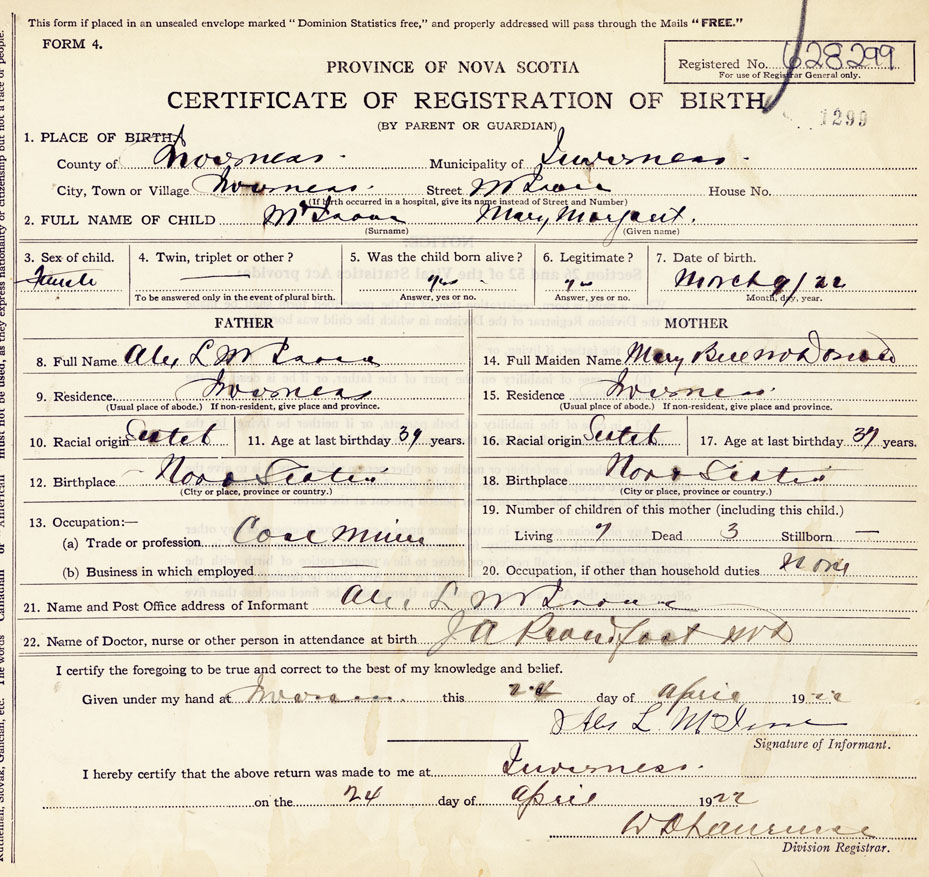 This form if placed in an unsealed envelope marked "Dominion Statistics free," and properly addressed will pass through the Mails "FREE."
FORM 4.
Registered No. 628299
For use of Registrar General only.
PROVINCE OF NOVA SCOTIA
CERTIFICATE OF REGISTRATION OF BIRTH
(BY PARENT OR GUARDIAN)
1299
1. PLACE OF BIRTH
County of Inverness. Municipality of Inverness.
City, Town or Village Inverness. Street McIsaac House No.
(If birth occurred in a hospital, give its name instead of Street and Number)
2. FULL NAME OF CHILD McIsaac Mary Margaret.
(Surname) (Given name)
3. Sex of child. 4. Twin, triplet or other? 5. Was the child born alive? 6. Legitimate? 7. Date of birth.
Female yes yes March 9/22
To be answered only in the event of plural birth. Answer, yes or no. Answer, yes or no. Month, day, year.
FATHER MOTHER
8. Full Name Alex L McIsaac 14. Full Maiden Name Mary Bell McDonald
9. Residence. Inverness 15. Residence Inverness
(Usual place of abode.) If non-resident, give place and province. (Usual place of abode.) If non-resident, give place and province.
10. Racial origin Scotch 11. Age at last birthday 39 years. 16. Racial origin Scotch 17. Age at last birthday 37 years.
12. Birthplace Nova Scotia 18. Birthplace Nova Scotia
(City or place, province or country.) (City or place, province or country.)
13. Occupation:— 19. Number of children of this mother (including this child.)
(a) Trade or profession Coal Miner Living 7 Dead 3 Stillborn —
(b) Business in which employed 20. Occupation, if other than household duties None
21. Name and Post Office address of Informant Alex L McIsaac
22. Name of Doctor, nurse or other person in attendance at birth J A Proudfoot MD
I certify the foregoing to be true and correct to the best of my knowledge and belief.
Given under my hand at Inverness. this 24 day of April 1922
Alex L McIsaac
Signature of Informant.
I hereby certify that the above return was made to me at Inverness.
on the 24 day of April 1922
W D Lawrence
Division Registrar.